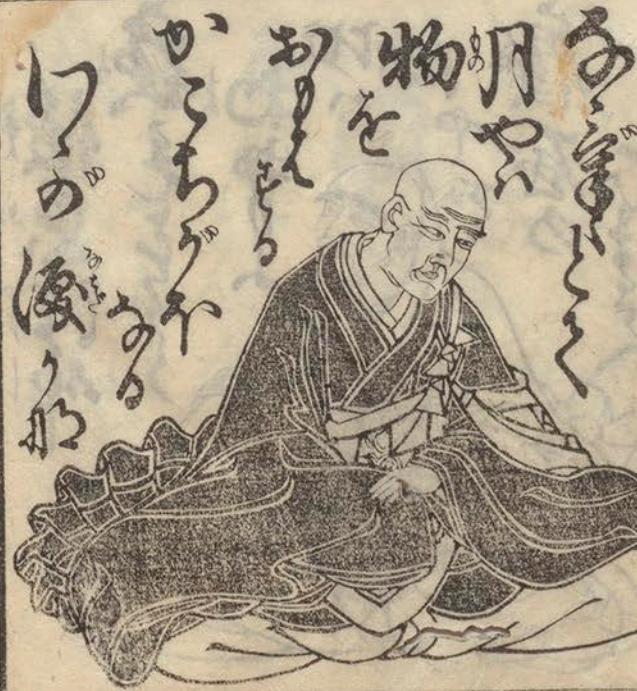 なげけとて
月やは
物を
おもは
する
かこちがほ
なる
わが涙かな